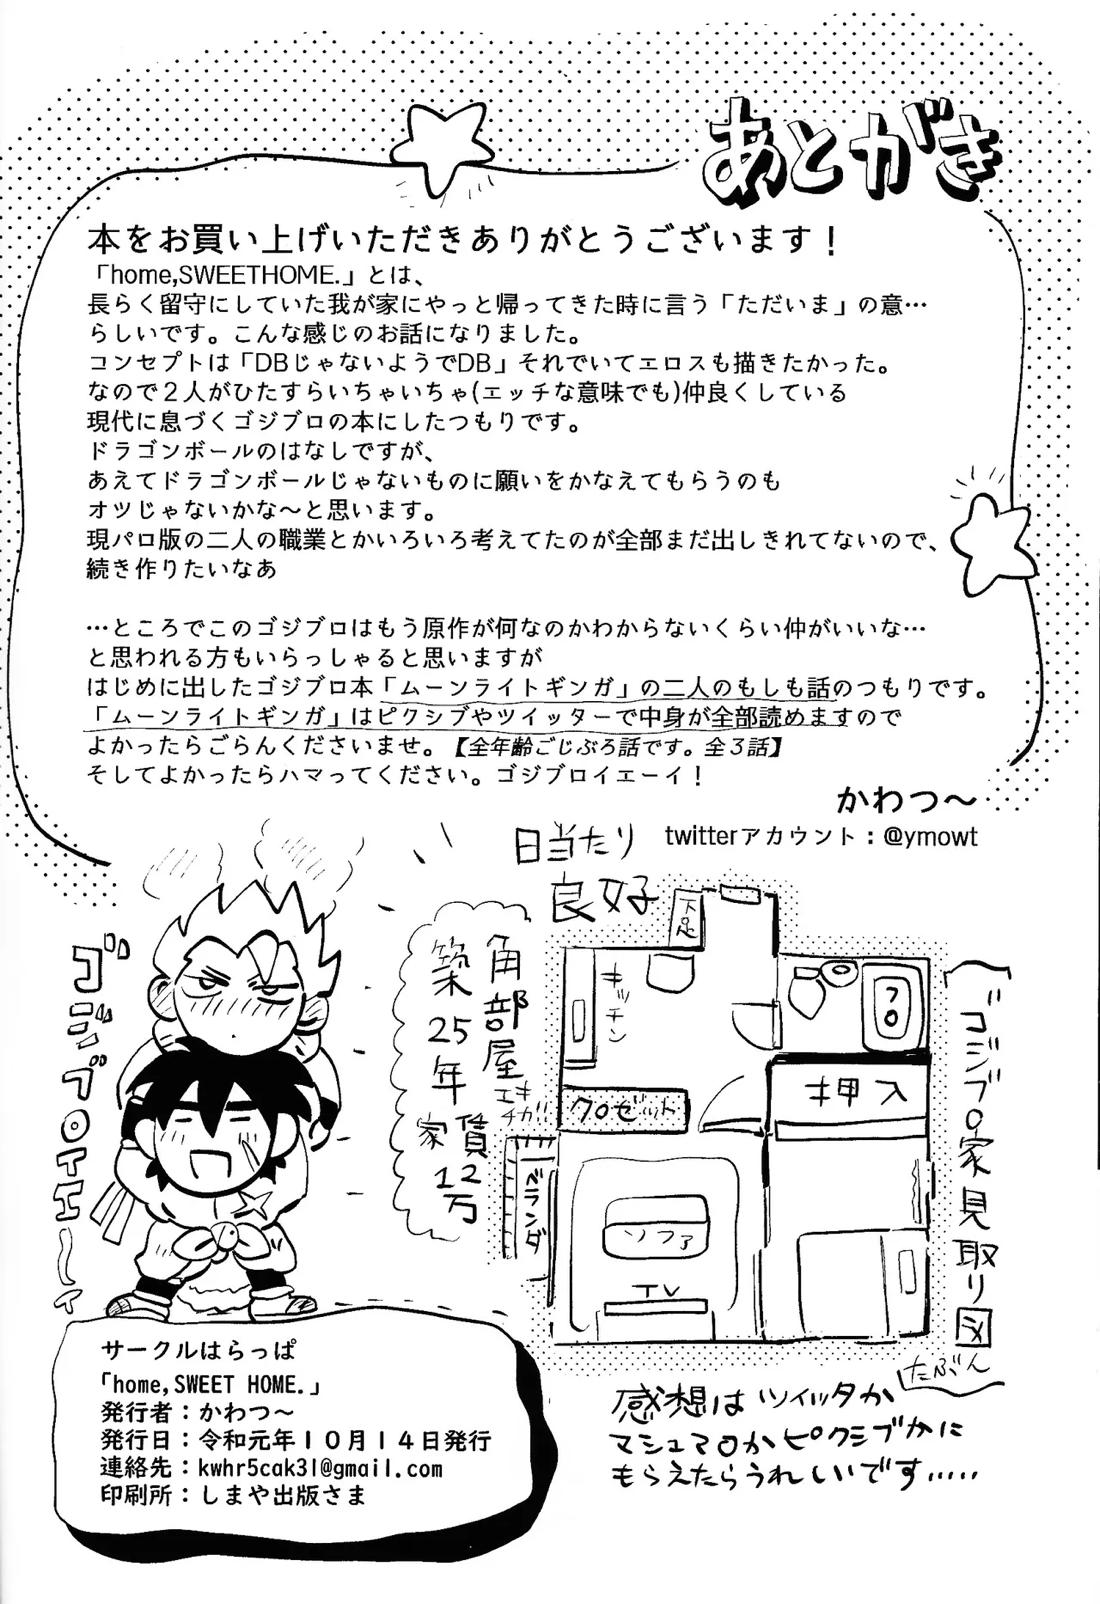 あとがき
本をお買い上げいただきありがとうございます！
「home,SWEETHOME.」とは、
長らく留守にしていた我が家にやっと帰ってきた時に言う「ただいま」の意…
らしいです。こんな感じのお話になりました。
コンセプトは「DBじゃないようでDB」それでいてエロスも描きたかった。
なので２人がひたすらいちゃいちゃ(エッチな意味でも)仲良くしている
現代に息づくゴジブロの本にしたつもりです。
ドラゴンボールのはなしですが、
あえてドラゴンボールじゃないものに願いをかなえてもらうのも
オツじゃないかな〜と思います。
現パロ版の二人の職業とかいろいろ考えてたのが全部まだ出しきれてないので、
続き作りたいなあ
…ところでこのゴジブロはもう原作が何なのかわからないくらい仲がいいな…
と思われる方もいらっしゃると思いますが
はじめに出したゴジブロ本「ムーンライトギンガ」の二人のもしも話のつもりです。
「ムーンライトギンガ」はピクシブやツイッターで中身が全部読めますので
よかったらごらんくださいませ。【全年齢ごじぶろ話です。全３話】
そしてよかったらハマってください。ゴジブロイエーイ！
かわつ〜
twitterアカウント：@ymowt
日当たり
良好
角部屋
築25年
エキチカ!!
家賃12万
下足
キッチン
フロ
クロゼット
押入
ベランダ
ソファ
TV
ゴジブロ家見取り図
たぶん
ゴジブロイエ〜イ
感想はツイッタか
マシュマロかピクシブかに
もらえたらうれしいです.....
サークルはらっぱ
「home,SWEET HOME.」
発行者：かわつ〜
発行日：令和元年１０月１４日発行
連絡先：kwhr5cak31@gmail.com
印刷所：しまや出版さま